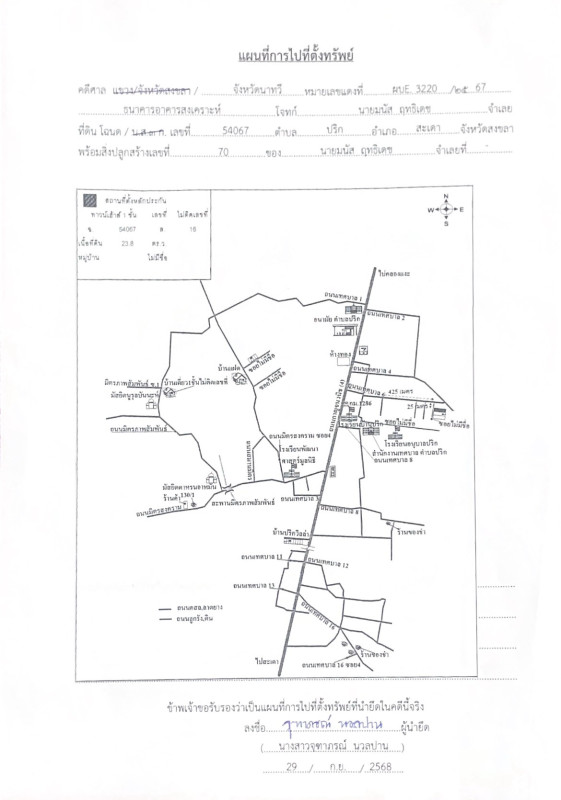 แผนที่การไปที่ตั้งทรัพย์
คดีศาล แขวง/จังหวัดสงขลา / จังหวัดนาทวี หมายเลขแดงที่ ผบE. 3220 /๒๕ 67
ธนาคารอาคารสงเคราะห์ โจทก์ นายมนัส ฤทธิเดช จำเลย
ที่ดิน โฉนด / น.ส.๓ ก. เลขที่ 54067 ตำบล ปริก อำเภอ สะเดา จังหวัดสงขลา
พร้อมสิ่งปลูกสร้างเลขที่ 70 ของ นายมนัส ฤทธิเดช จำเลยที่ -
สถานที่ตั้งหลักประกัน
ทาวน์เฮ้าส์ 1 ชั้น เลขที่ ไม่ติดเลขที่
ฉ. 54067 ล. 16
เนื้อที่ดิน 23.8 ตร.ว.
หมู่บ้าน ไม่มีชื่อ
N
W E
S
ไปคลองแงะ
ถนนเทศบาล 1
ถนนเทศบาล 2
อนามัย ตำบลปริก
ถนนเทศบาล 4
ถนนเทศบาล 6
425 เมตร
25 เมตร
กม.1286
ซอยไม่มีชื่อ
ซอยไม่มีชื่อ
โรงเรียนอนุบาลปริก
สำนักงานเทศบาล ตำบลปริก
ถนนเทศบาล 8
ซอยไม่มีชื่อ
ซอยไม่มีชื่อ
บ้านเดี่ยวชั้นไม่ติดเลขที่
มิตรภาพสัมพันธ์ ซ.1
ถนนมิตรภาพสัมพันธ์
ถนนมิตรสงคราม ซอย4
โรงเรียนพัฒนา
ศาสตร์มูลนิธิ
ร้านค้า 130/1
สะพานมิตรภาพสัมพันธ์
ถนนมิตรสงคราม
ร้านของชำ
บ้านปริกวิลล่า
ถนนเทศบาล 11
ถนนเทศบาล 12
ถนนเทศบาล 13
ถนนเทศบาล 16
ร้านของชำ
ถนนเทศบาล 16 ซอย4
ถนนคสล.ลาดยาง
ถนนลูกรัง,ดิน
ไปสะเดา
ข้าพเจ้าขอรับรองว่าเป็นแผนที่การไปที่ตั้งทรัพย์ที่นำยึดในคดีนี้จริง
ลงชื่อ จุฑาภรณ์ นวลปาน ผู้นำยึด
( นางสาวจุฑาภรณ์ นวลปาน )
29 / ก.ย. / 2568